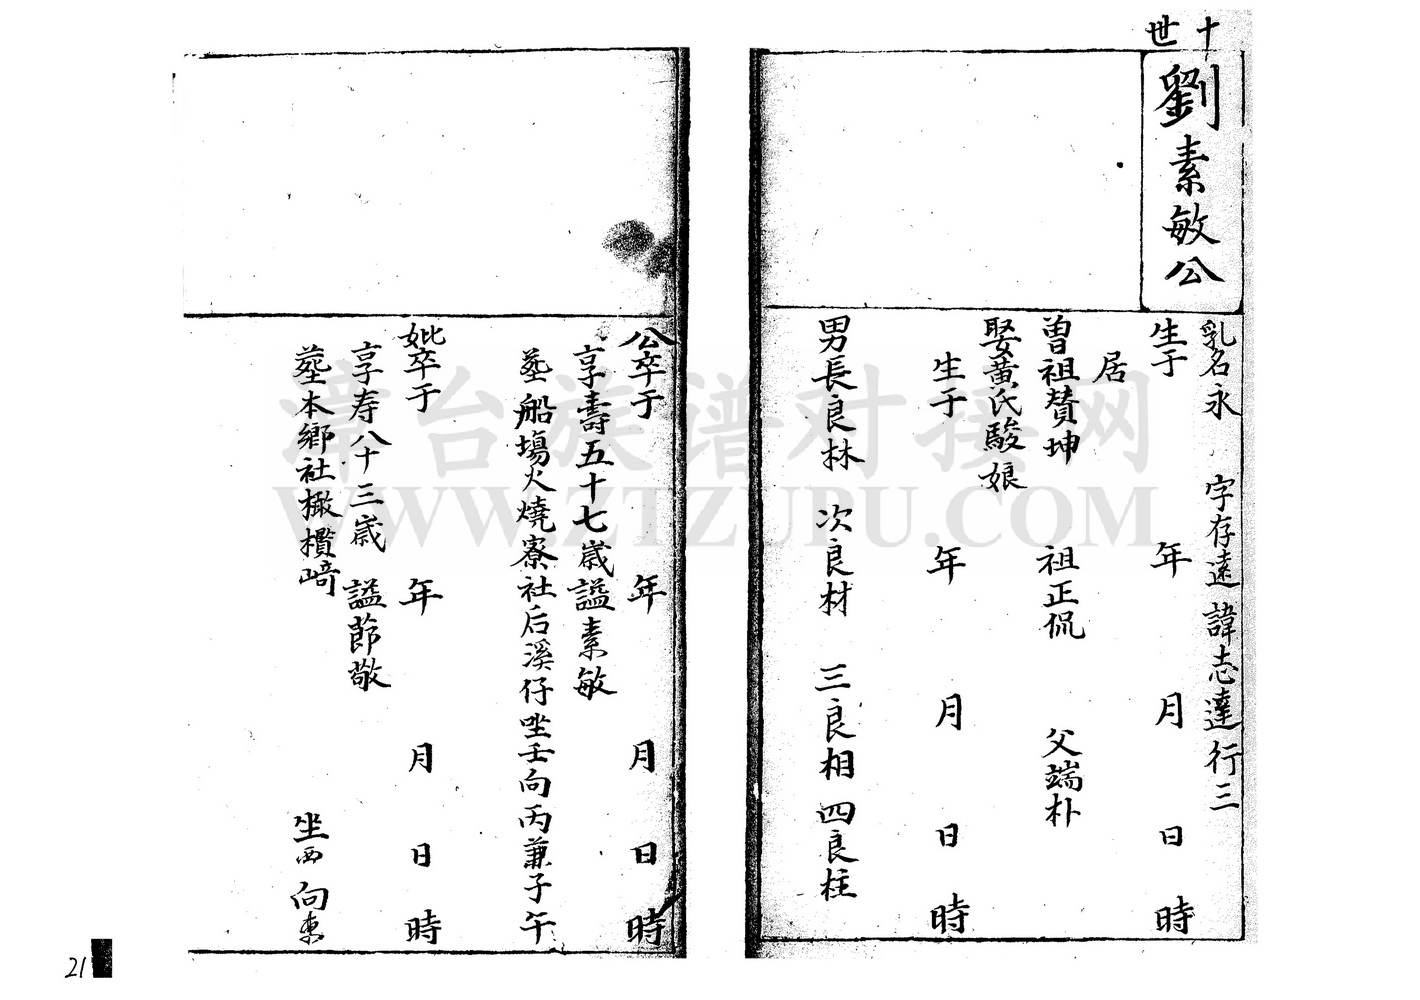 十世
劉素敏公
乳名永 字存遠 諱志達 行三
生于 年 月 日 時
居
曾祖贊坤 祖正侃 父端朴
娶黃氏駿娘
生于 年 月 日 時
男長良林 次良材 三良相 四良柱
公卒于 年 月 日 時
享壽五十七歲 謚素敏
塟船塲火燒寮社后溪仔坐壬向丙兼子午
妣卒于 年 月 日 時
享寿八十三歲 謚節敬
塟本鄉社橄欖崎 坐西向東
漳台族谱对接网
WWW.ZTZUPU.COM
21